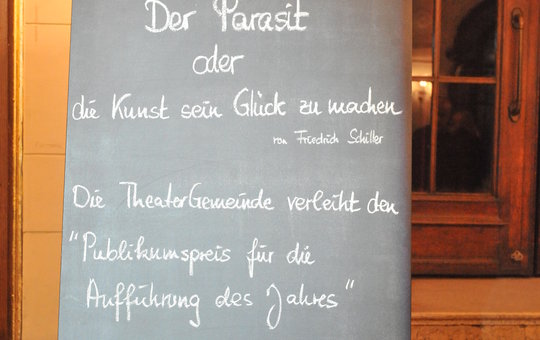 Der Parasit
oder
die Kunst sein Glück zu machen
von Friedrich Schiller
Die TheaterGemeinde verleiht den
"Publikumspreis für die
Aufführung des Jahres"